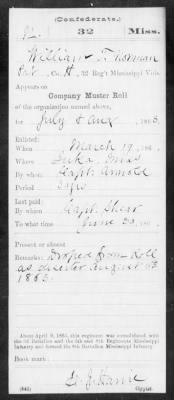 (Confederate.)
32 Miss.
William T. Norman
Pvt, Co. H, 32 Reg't Mississippi Vols.
Appears on
Company Muster Roll
of the organization named above,
for July & Aug, 1863.
Enlisted:
When March 19, 186
Where Iuka, Miss
By whom Capt. Arnold
Period 3 yrs
Last paid:
By whom Capt.
To what time June 30, 186
Present or absent
Remarks: Droped from Roll
as deserter August
1863.
About April 9, 1865, this regiment was consolidated with
the 5th Battalion and the 8th and Regiments Mississippi
Infantry and formed the 8th Battalion Mississippi Infantry
Book mark:
(642)
Copyist.